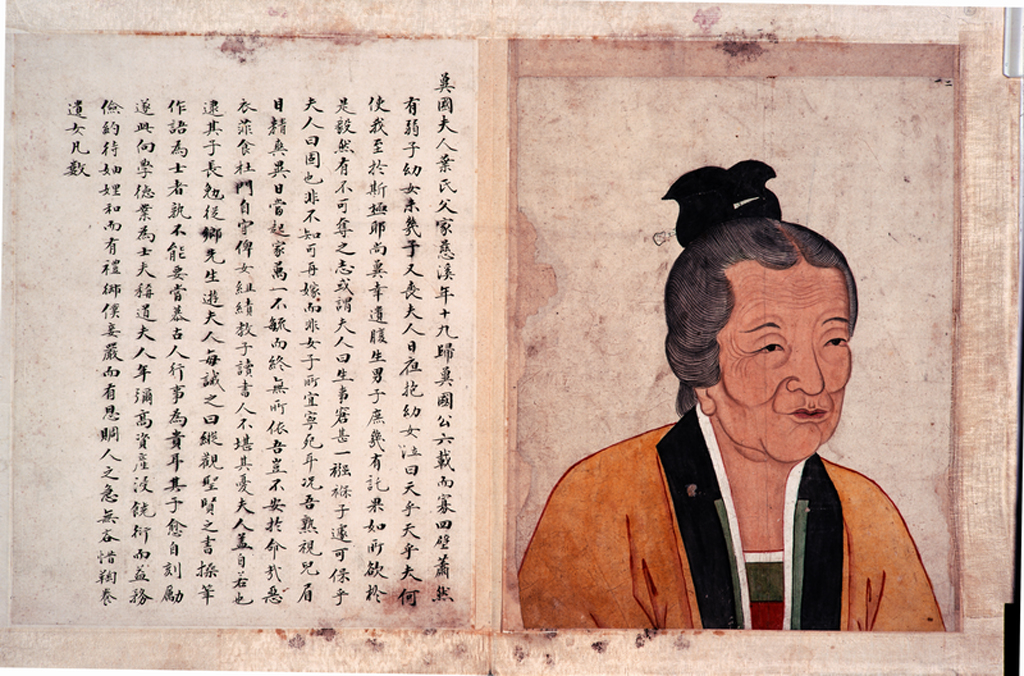 冀國夫人葉氏父家慈溪年十九歸冀國公六載而寡四壁蕭然
有弱子幼女未幾子又喪夫人日夜抱幼女泣曰天乎天乎夫何
使我至於斯極耶尚冀幸遺腹生男子庶幾有託果如所欲於
是毅然有不可奪之志或謂夫人曰生事窘甚一襁褓子遽可保乎
夫人曰固也非不知可再嫁而非女子所宜寧死耳况吾熟視兒眉
目精爽異日當起家萬一不毓而終無所依吾豈不安於命哉惡
衣菲食杜門自守俾女組績教子讀書人不堪其憂夫人蓋自若也
逮其子長勉從鄉先生遊夫人每誡之曰縱觀聖賢之書操筆
作語為士者孰不能要當慕古人行事為貴耳其子愈自刻勵
遂此向學德業為士夫稱道夫人年彌高資產浸饒衍而益務
儉約待妯娌和而有禮御僕妾嚴而有恩賙人之急無吝惜鞠養
遺女凡數
二